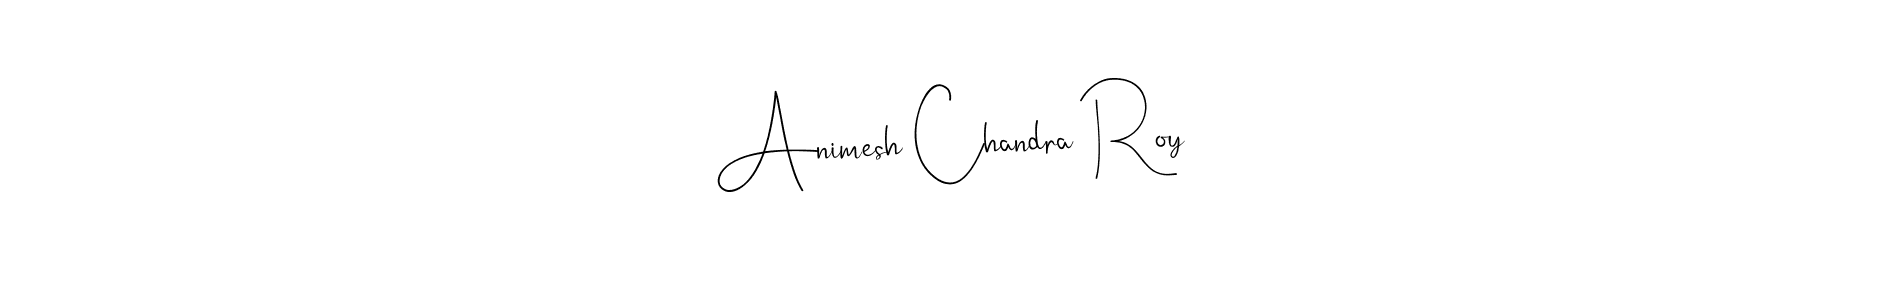 Animesh Chandra Roy